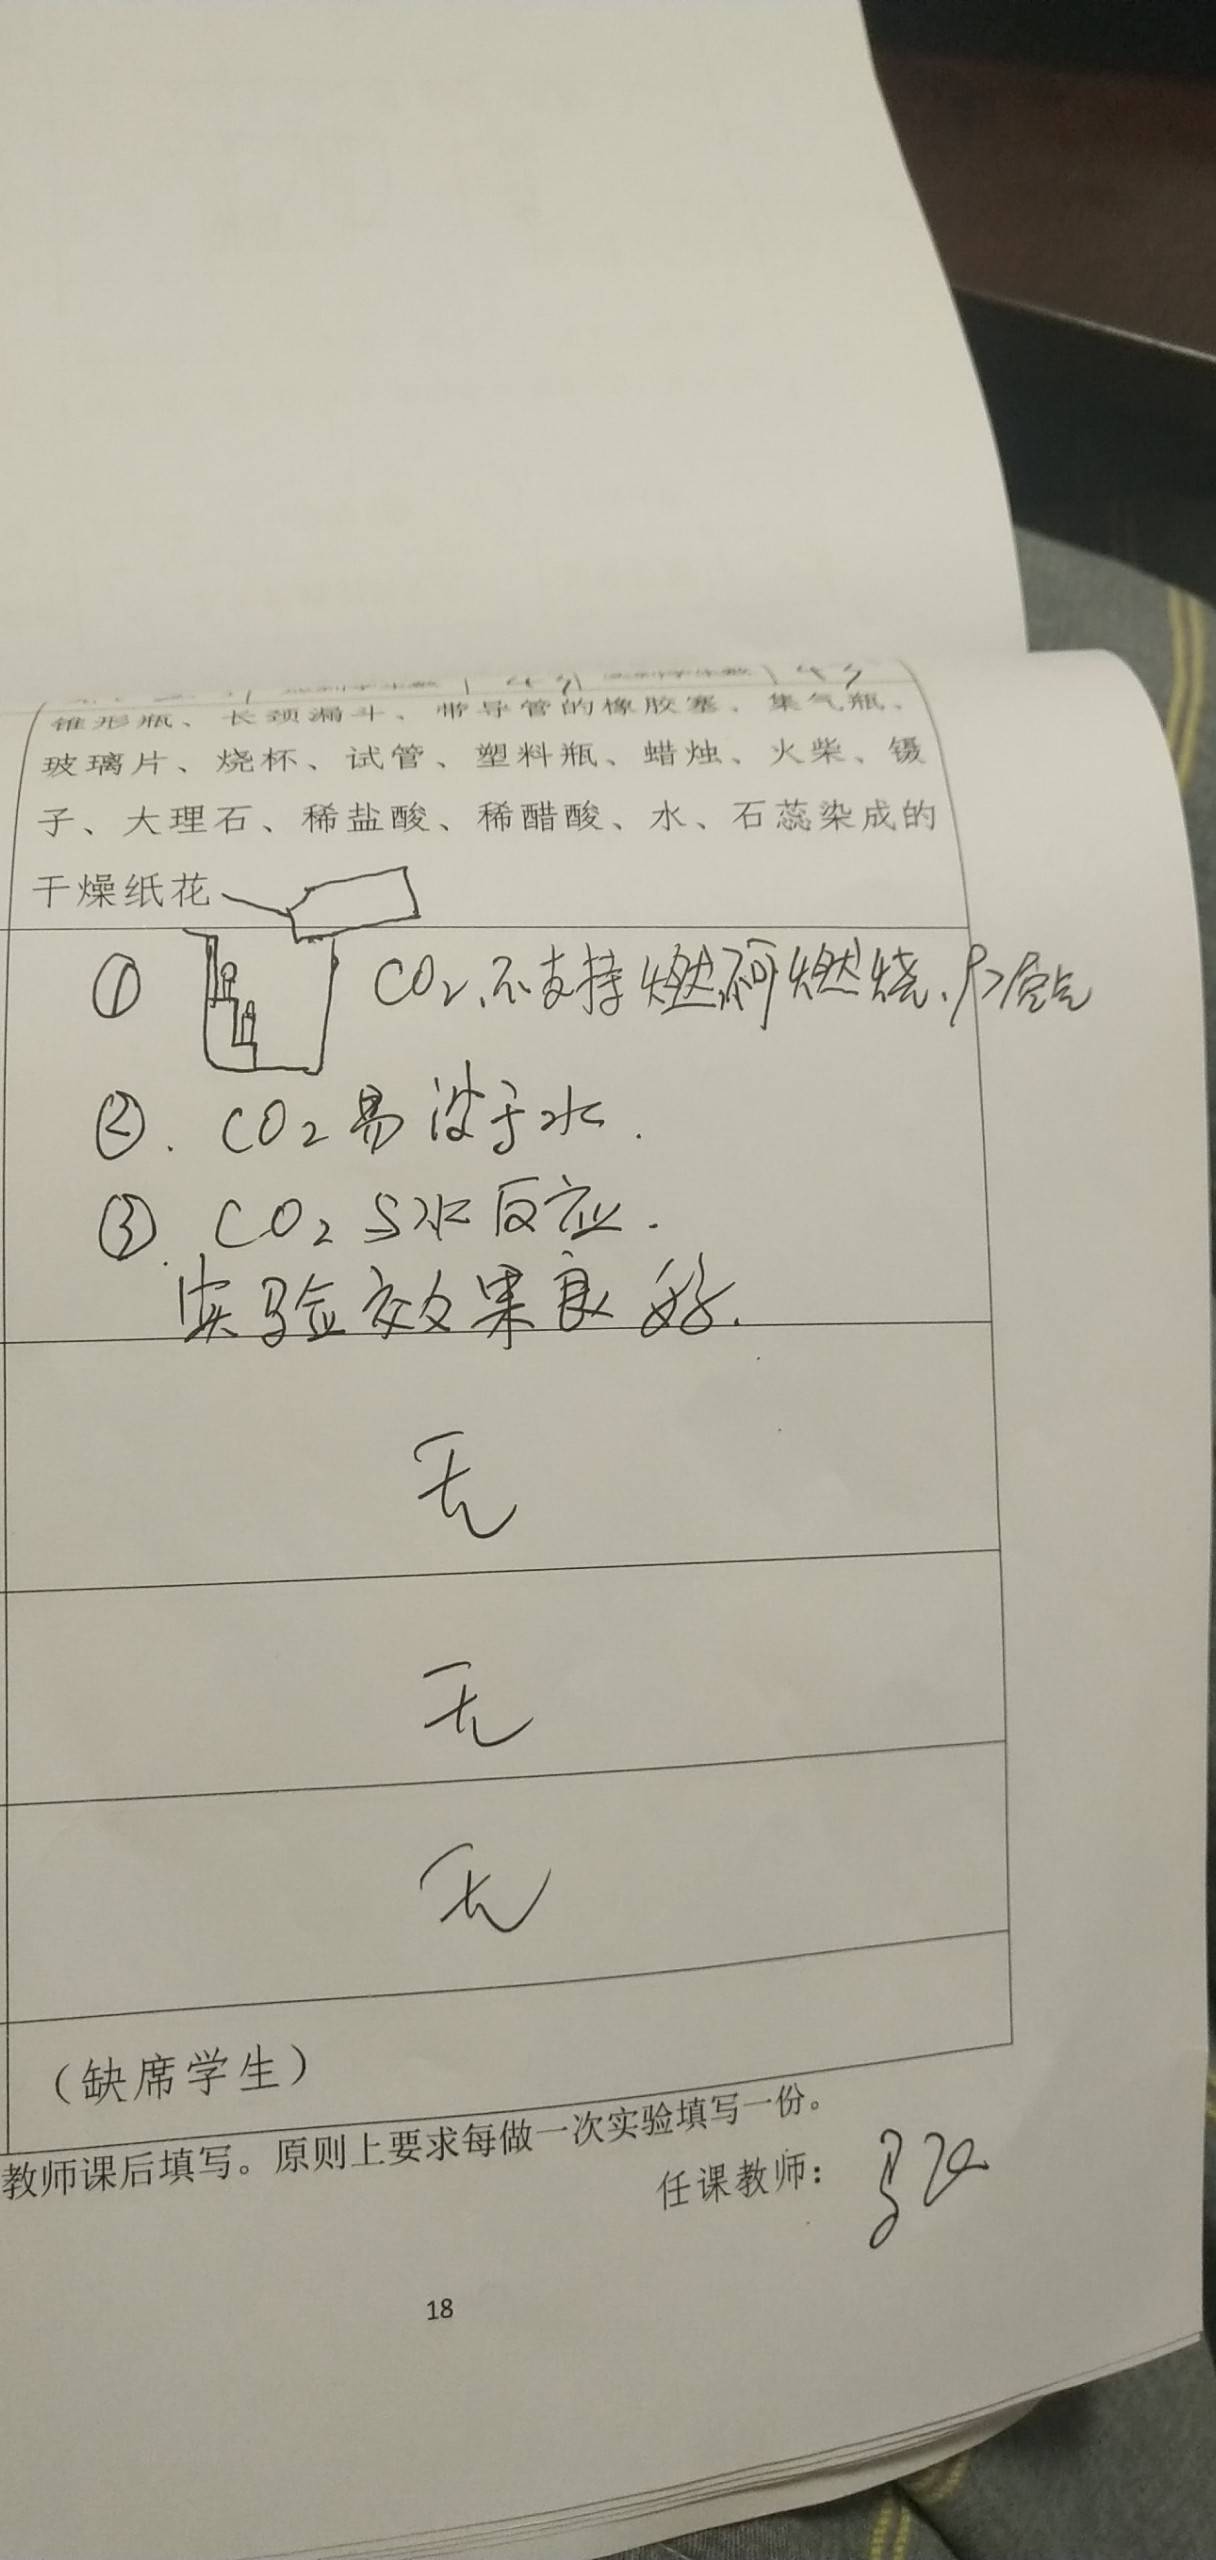 锥形瓶、长颈漏斗、带导管的橡胶塞、集气瓶、
玻璃片、烧杯、试管、塑料瓶、蜡烛、火柴、镊
子、大理石、稀盐酸、稀醋酸、水、石蕊染成的
干燥纸花
① CO2不支持燃烧,不可燃烧,ρ>空气
②. CO2易溶于水.
③. CO2与水反应.
实验效果良好.
无
无
无
(缺席学生)
教师课后填写。原则上要求每做一次实验填写一份。
任课教师:
18